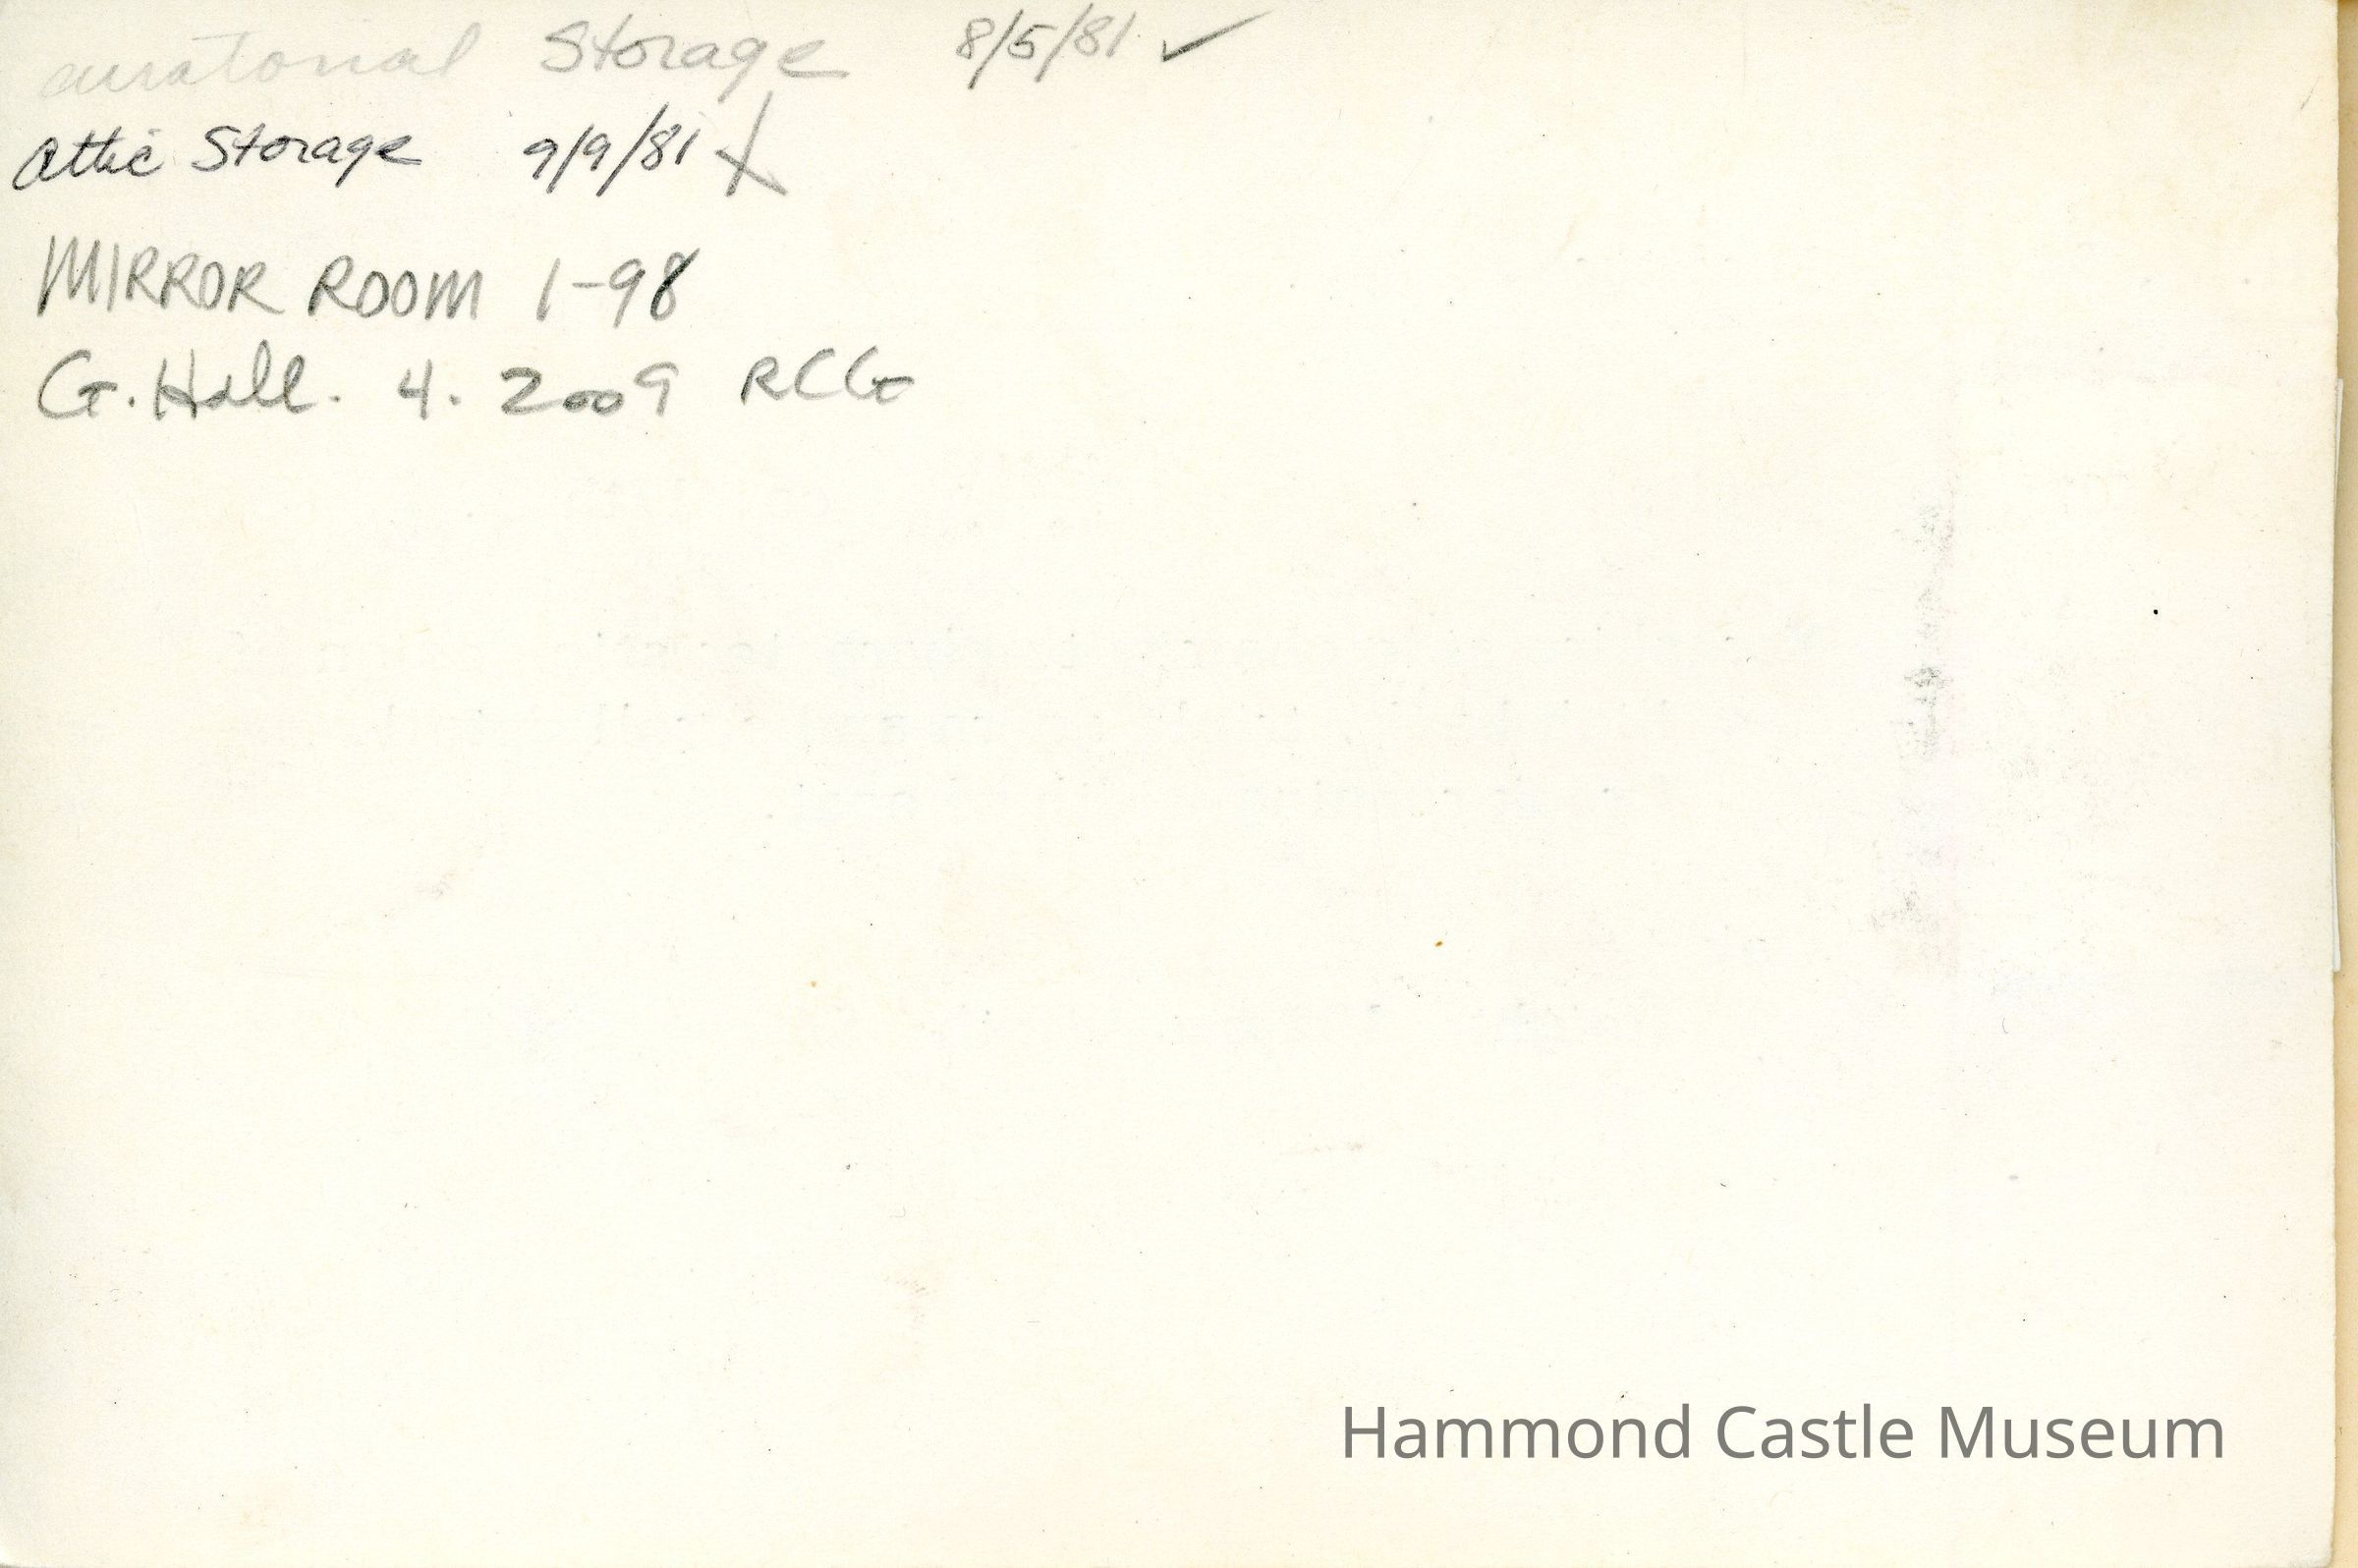 curatorial Storage 8/5/81 ✓
Attic Storage 9/9/81 X
MIRROR ROOM 1-98
G. Hall. 4. 2009 RCG
Hammond Castle Museum